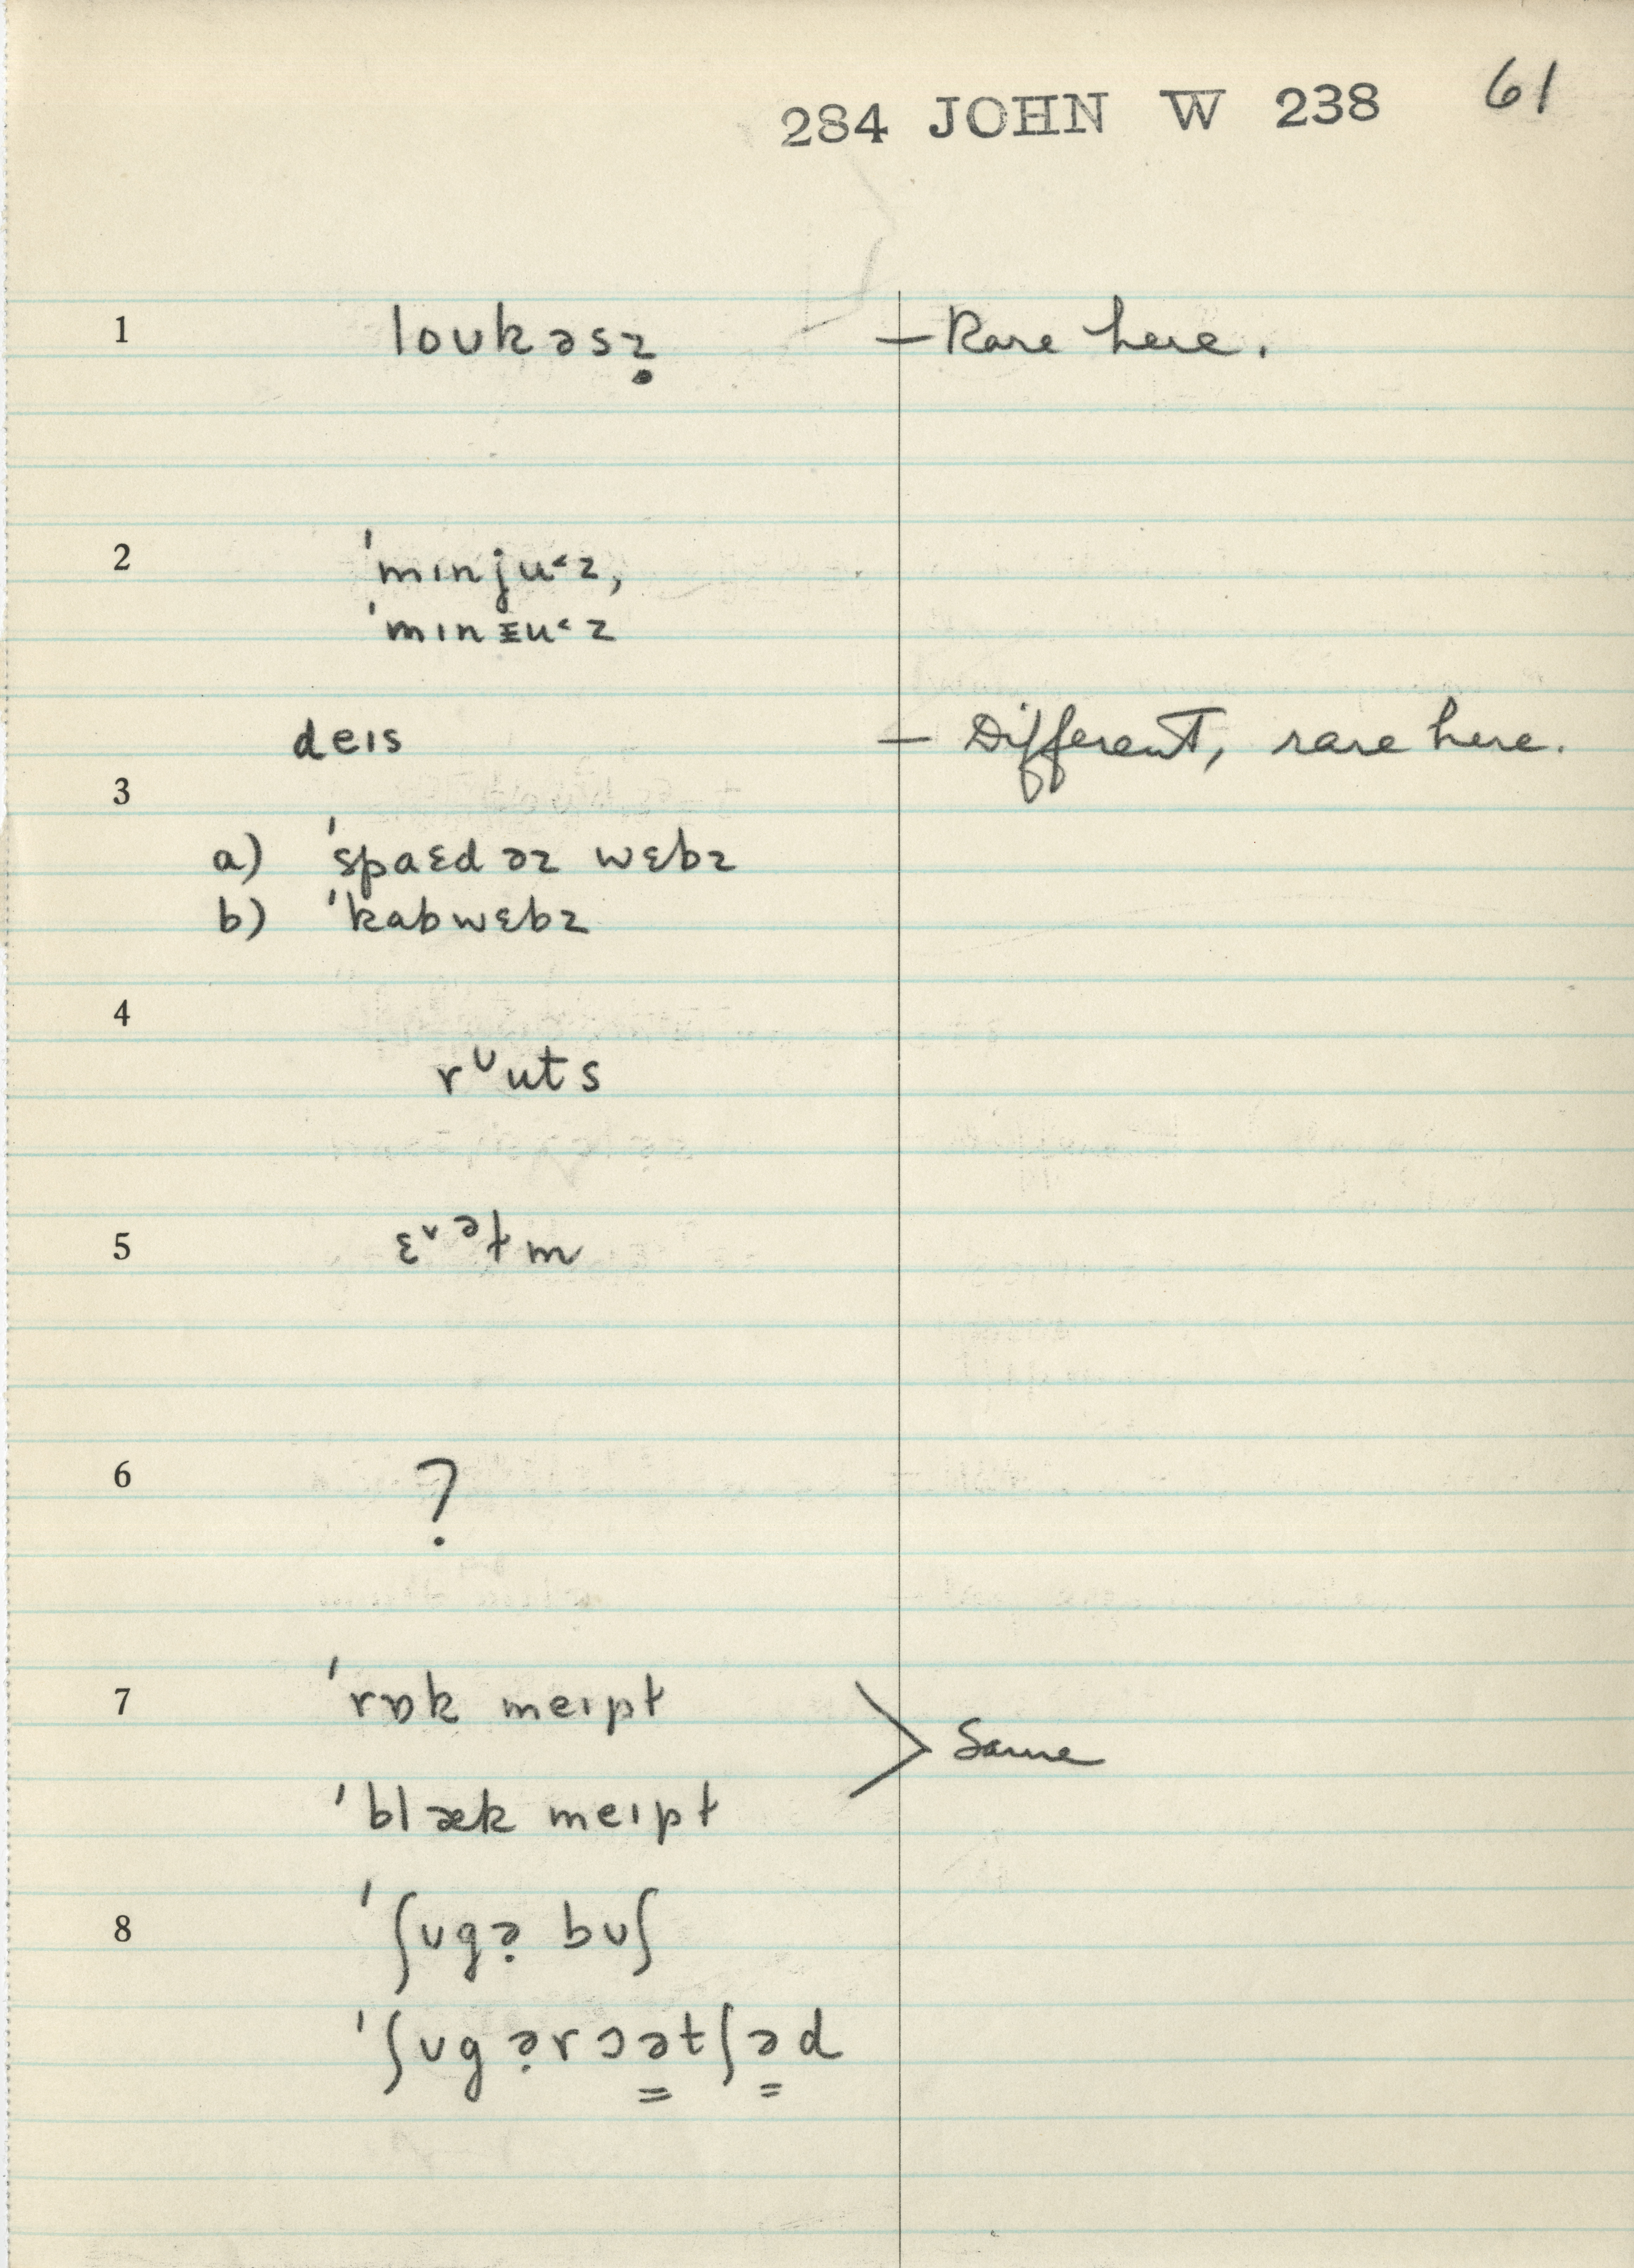 284 JOHN W 238 61
1 loʊkəsẓ — Rare here.
2 ˈmɪnju˂z,
ˈmɪnɪu˂z
deɪs — Different, rare here.
3
a) ˈspaɛdəz wɛbz
b) ˈkabwɛbz
4
rᶷuts
5 ɛ˅ᵊɫm
6 ?
7 ˈrɒk meɪpɫ
> Same
ˈblæk meɪpɫ
8 ˈʃʊgə̣ bʊʃ
ˈʃʊgə̣rɔə̳tʃə̳d